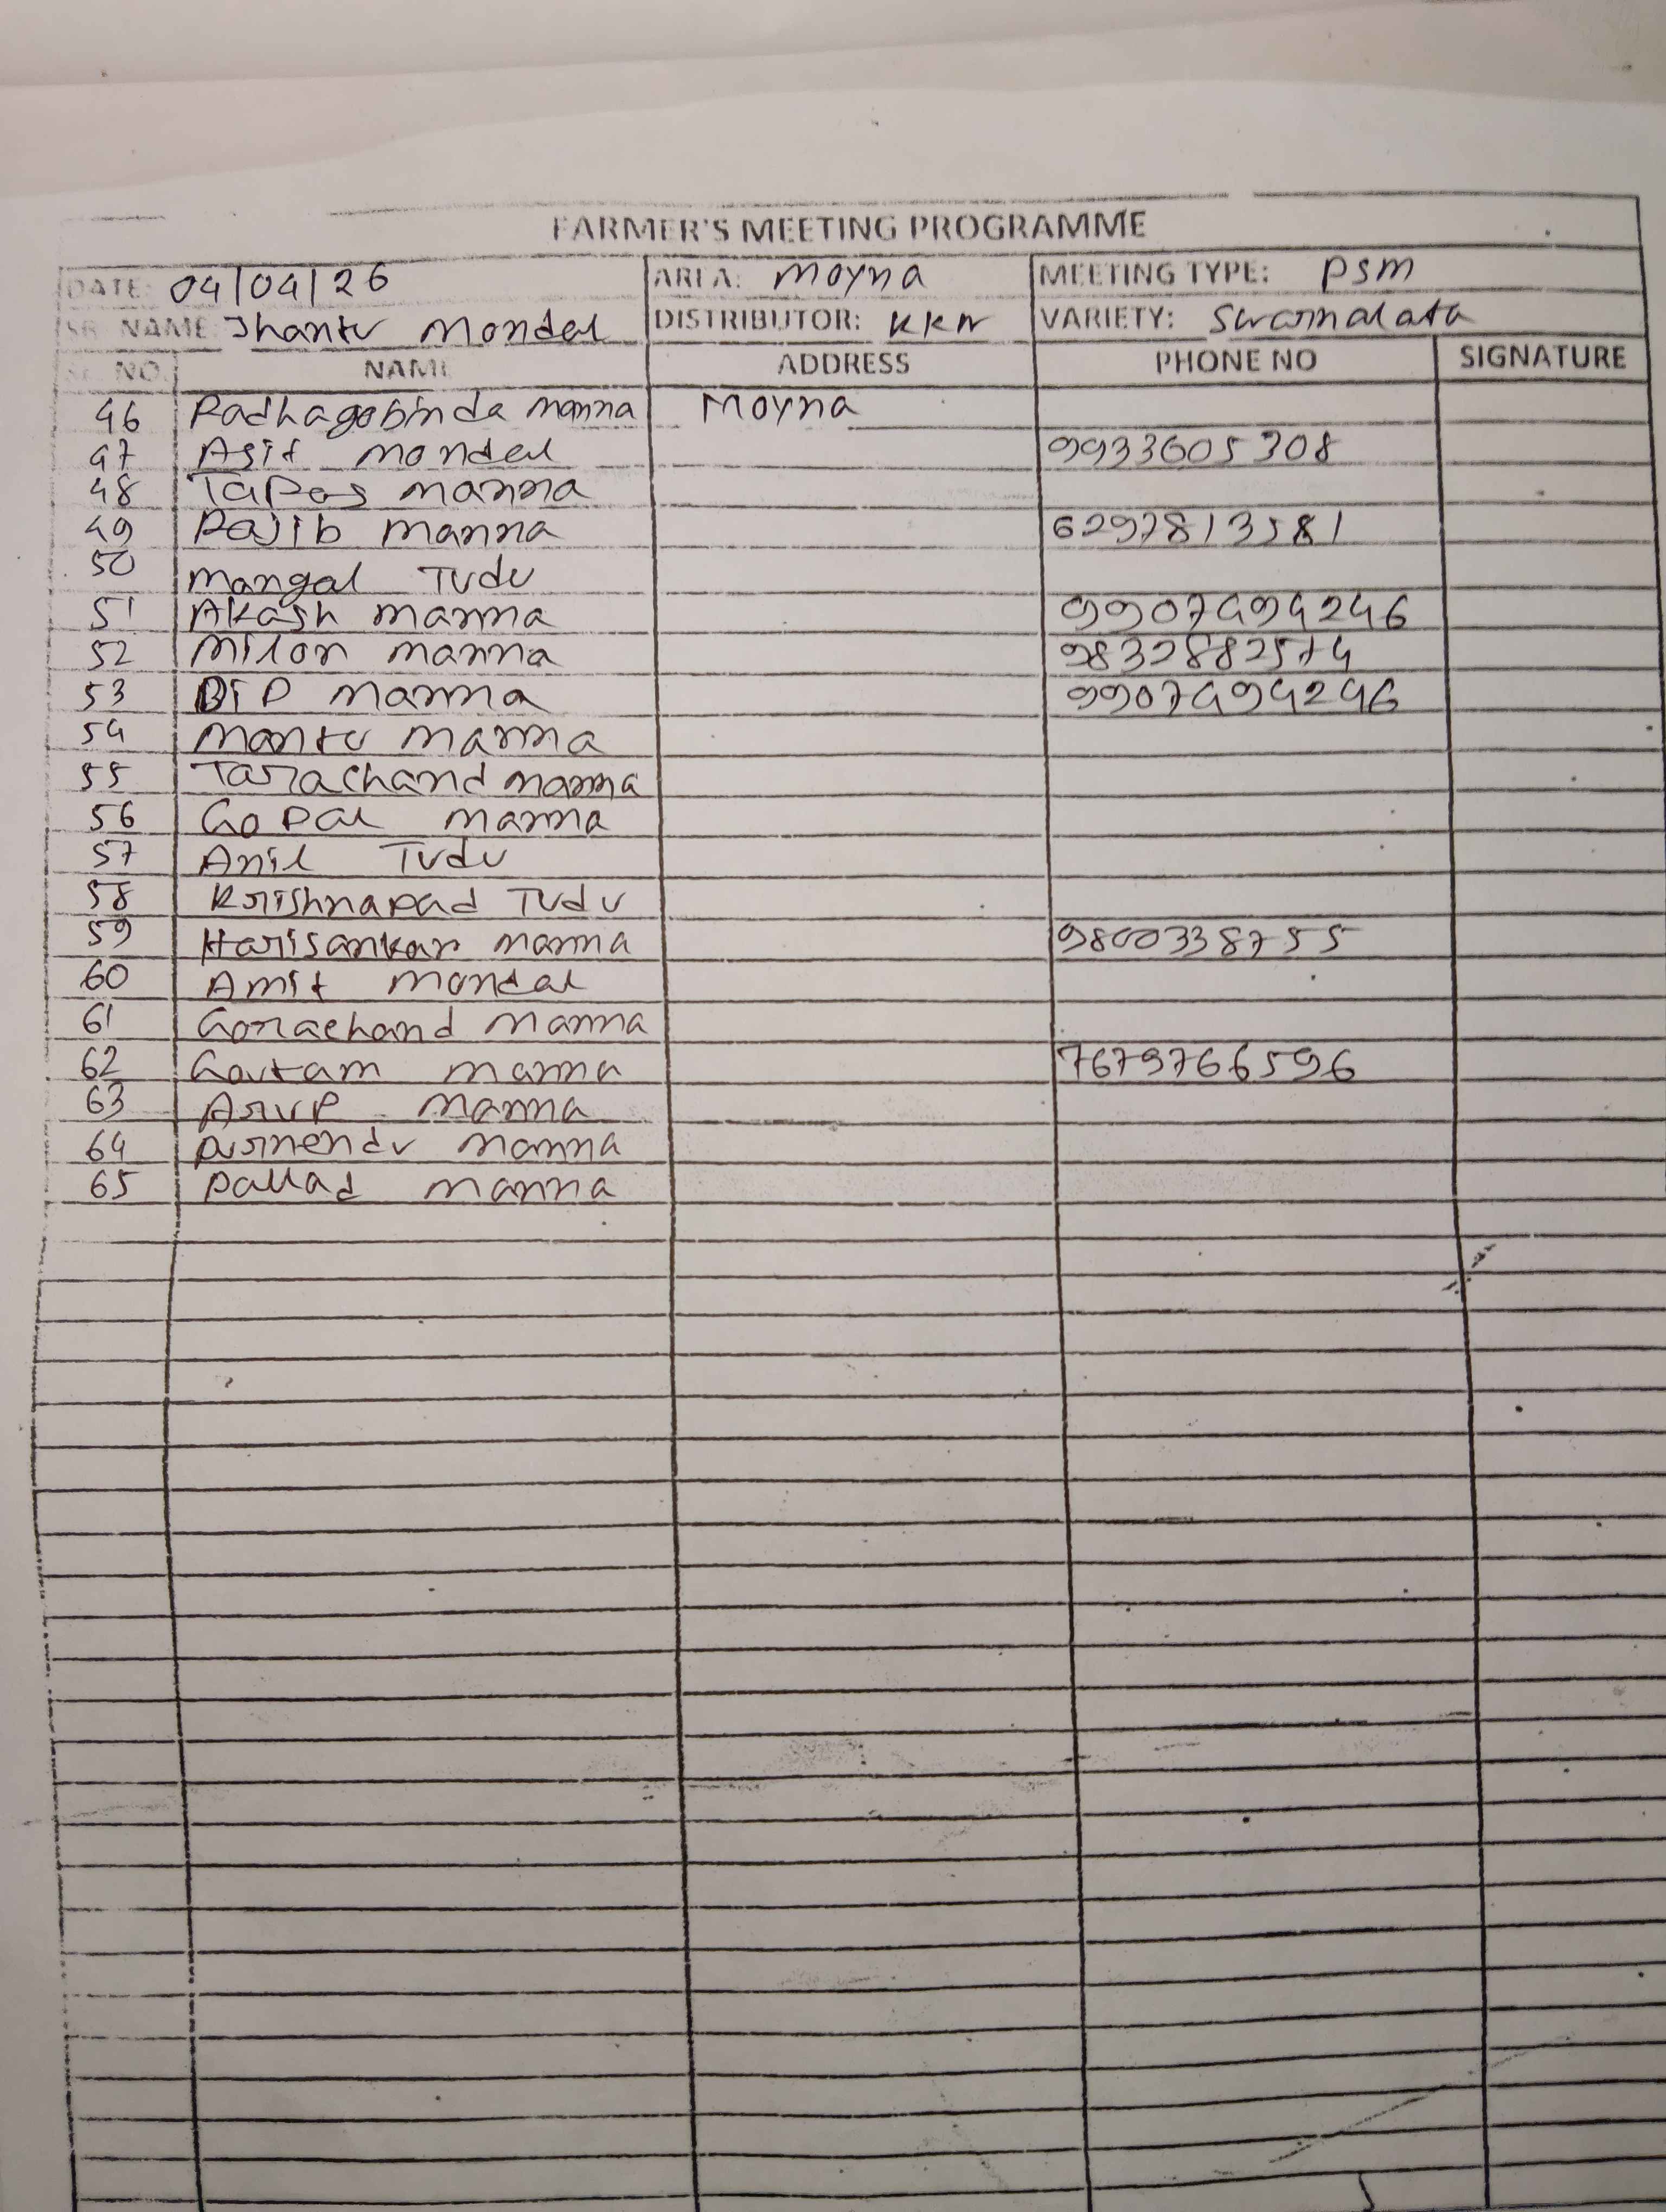 FARMER'S MEETING PROGRAMME
DATE: 04/04/26 AREA: Moyna MEETING TYPE: PSM
SR. NAME: Jhantu Mondal DISTRIBUTOR: KKN VARIETY: Swarnalata
SR. NO. NAME ADDRESS PHONE NO SIGNATURE
46 Radhagobinda Manna Moyna
47 Asit Mondal 9933605308
48 Tapas Manna
49 Rajib Manna 6297813581
50 Mangal Tudu
51 Akash Manna 9907494246
52 Milon Manna 9832882574
53 DIP Manna 9907494246
54 Mantu Manna
55 Tarachand Manna
56 Gopal Manna
57 Anil Tudu
58 Krishnapad Tudu
59 Harisankar Manna 9800338755
60 Amit Mondal
61 Gorachand Manna
62 Goutam Manna 7679766596
63 Arup Manna
64 Purnendu Manna
65 Pallad Manna